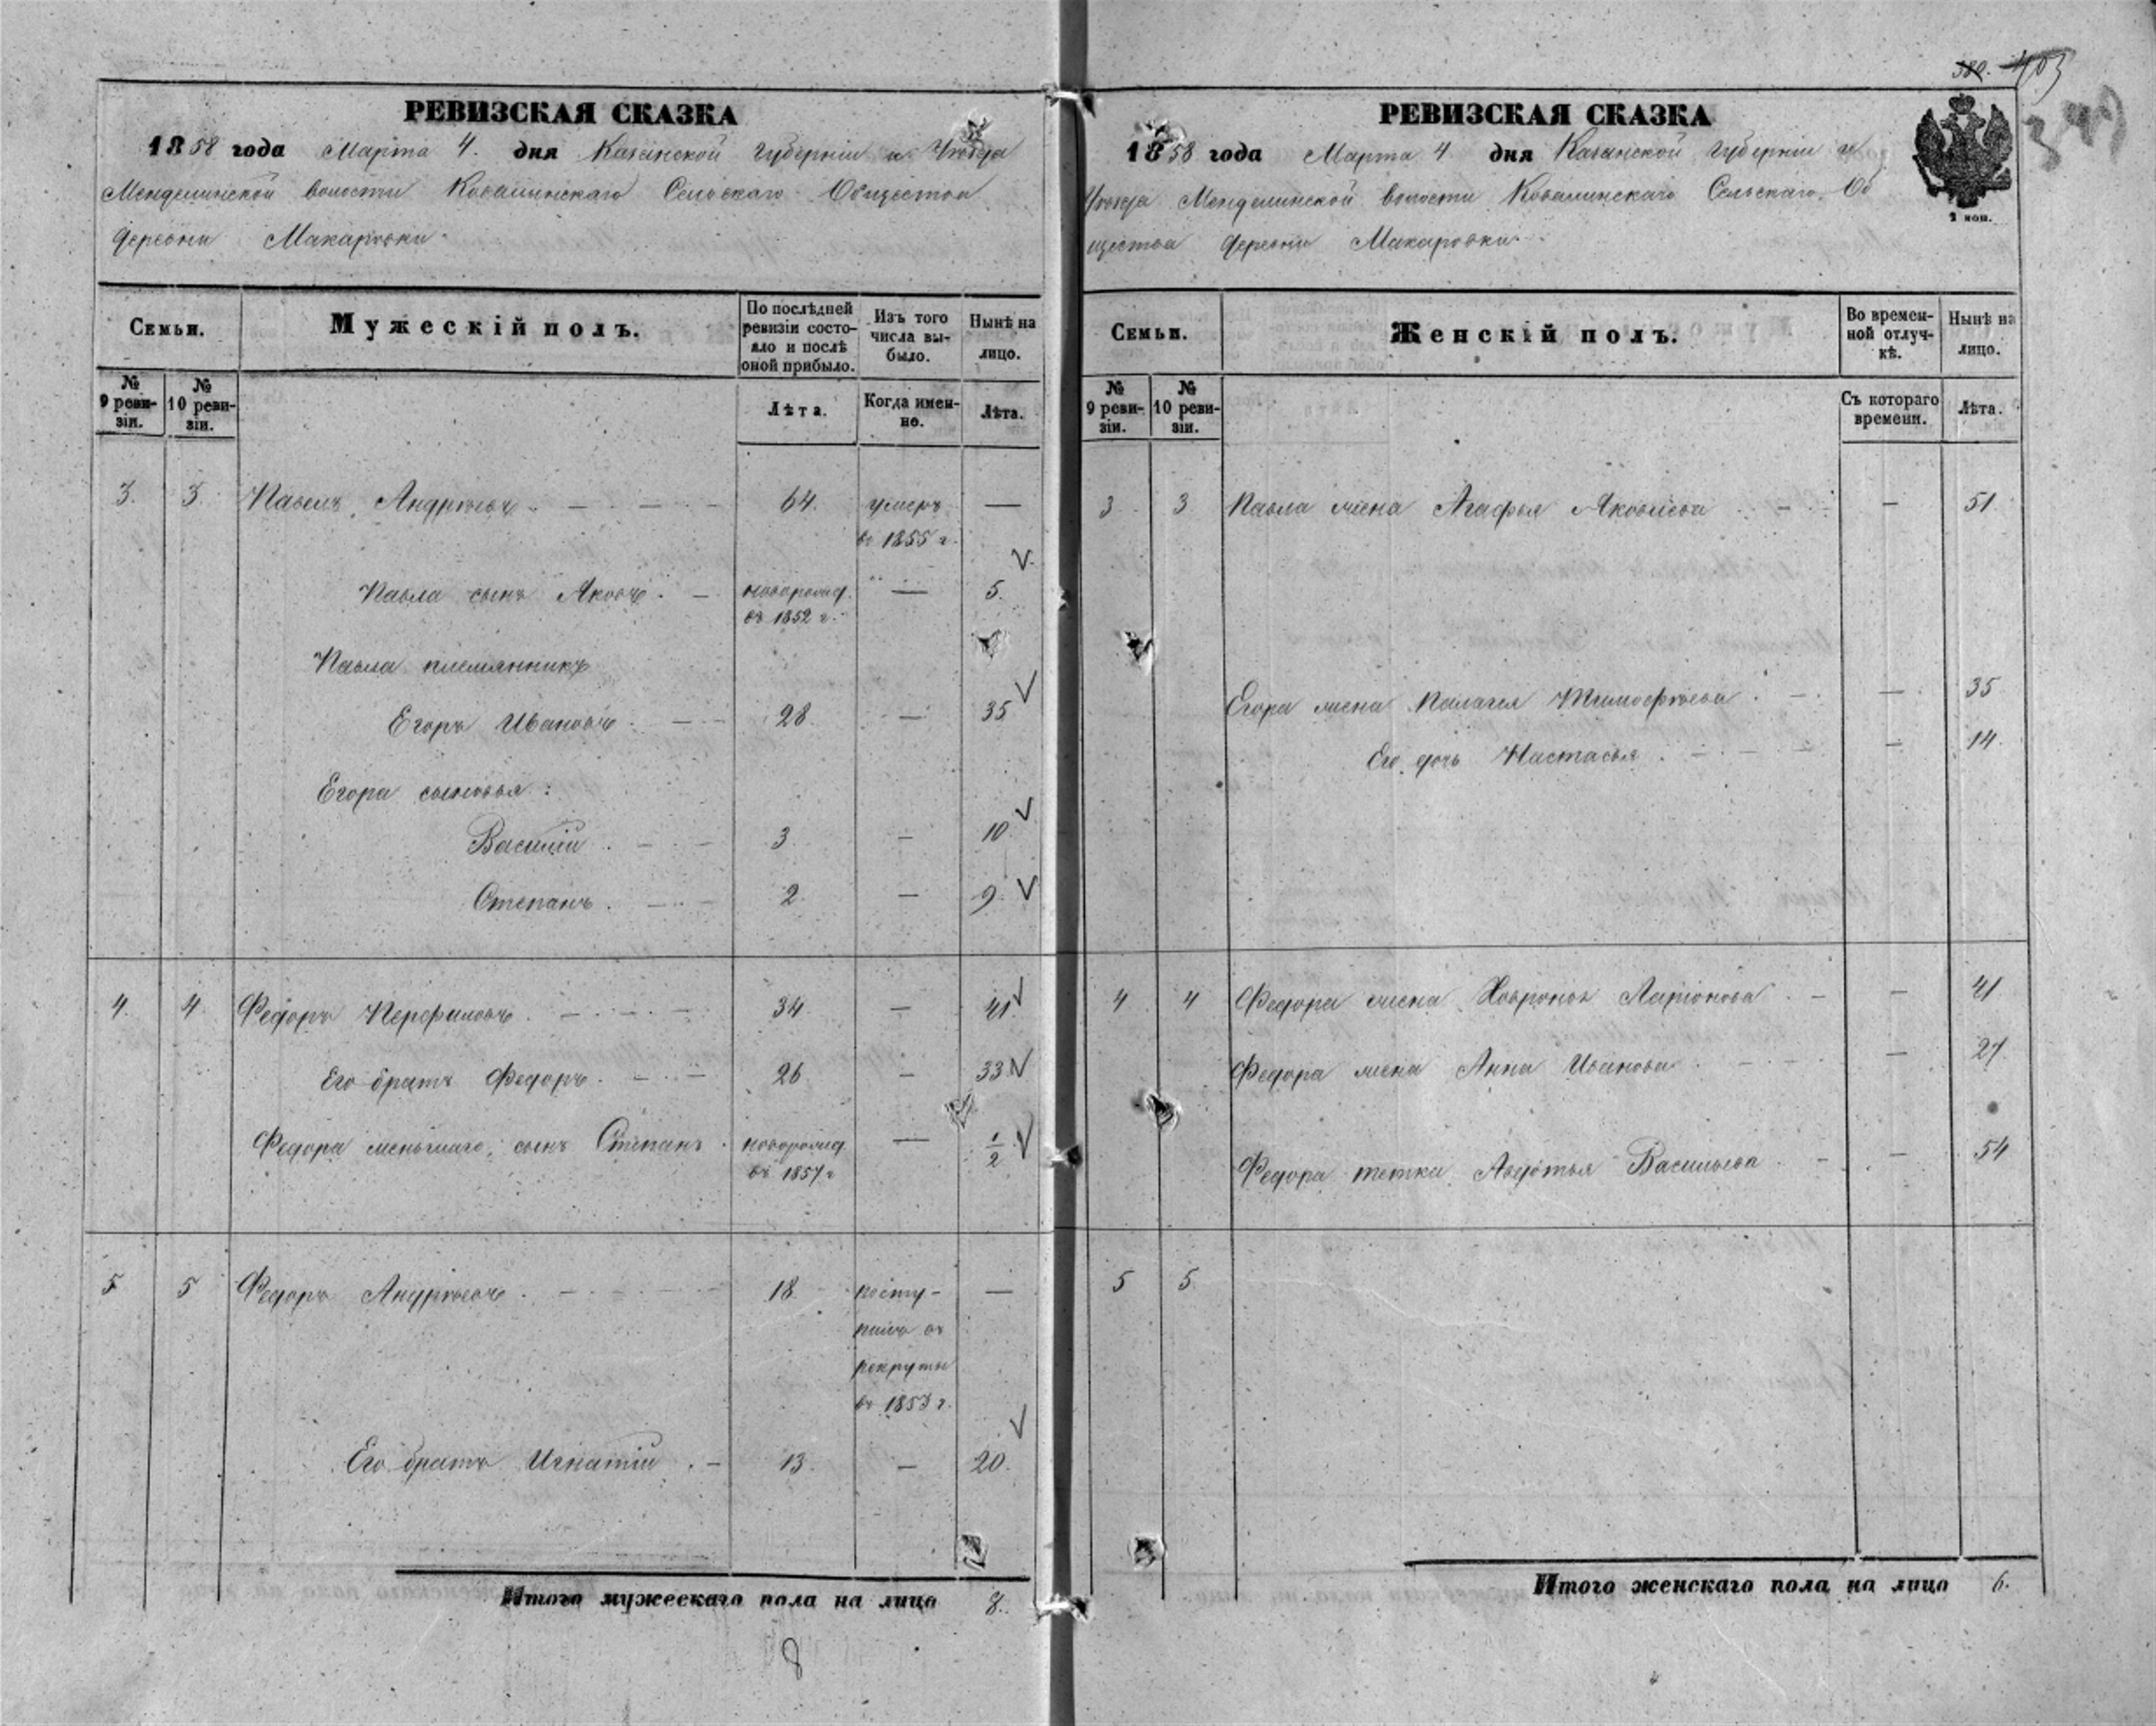 РЕВИЗСКАЯ СКАЗКА
1858 года Марта 4. дня Казанской Губерніи и Уѣзда
Менделинской волости Ковалинскаго Сельскаго Общества
деревни Макаровки.
Семьи.
Мужескій полъ.
По послѣдней ревизіи состояло и послѣ оной прибыло.
Изъ того числа выбыло.
Нынѣ на лицо.
№ 9 ревизіи.
№ 10 ревизіи.
Лѣта.
Когда именно.
Лѣта.
3. 3 Павелъ Андрѣевъ 64. умеръ —
въ 1855 г.
Павла сынъ Яковъ. новорожд. — 5.
въ 1852 г.
Павла племянникъ
Егоръ Ивановъ 28. — 35
Егора сыновья:
Василій 3 — 10
Степанъ. 2. — 9.
4. 4 Федоръ Перфиловъ. 34 — 41
Его братъ Федоръ. 26 — 33
Федора меньшаго, сынъ Степанъ новорожд. — 1/2
въ 1857 г
5 5 Федоръ Андрѣевъ. 18. посту- —
пилъ въ
рекруты
въ 1853 г.
Его братъ Игнатій 13. — 20.
Итого мужескаго пола на лицо 8.
8
380. 403
РЕВИЗСКАЯ СКАЗКА
1858 года Марта 4 дня Казанской Губерніи и
Уѣзда Менделинской волости Ковалинскаго Сельскаго Об
щества деревни Макаровки.
2 коп.
Семьи.
Женскій полъ.
Во временной отлучкѣ.
Нынѣ на лицо.
№ 9 ревизіи.
№ 10 ревизіи.
Съ котораго времени.
Лѣта.
3 3 Павла жена Агафья Яковлева — 51
Егора жена Палагея Тимофѣева — 35
Его дочь Настасья — 14.
4 4 Федора жена Хавронья Ларіонова — 41
Федора жена Анна Иванова — 27
Федора тетка Авдотья Васильева — 54
5 5
Итого женскаго пола на лицо 6.